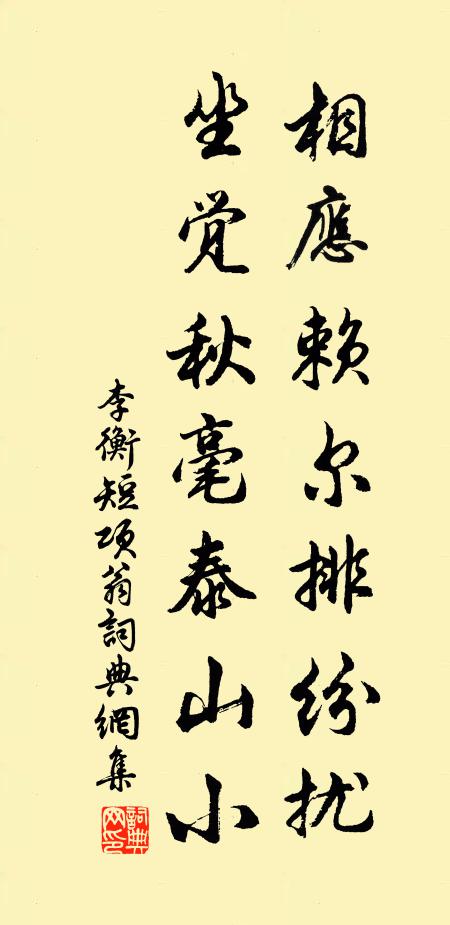 相應赖尔排纷扰
坐觉秋毫泰山小
李衡短项翁詞典網集
詞典网印